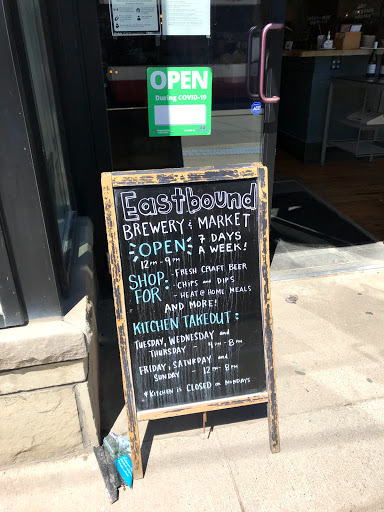 OPEN
OPEN
During COVID-19
Eastbound
BREWERY & MARKET
OPEN 7 DAYS A WEEK!
12PM - 9PM
SHOP FOR:
- FRESH CRAFT BEER
- CHIPS AND DIPS
- HEAT @ HOME MEALS
AND MORE!
KITCHEN TAKEOUT:
TUESDAY, WEDNESDAY and
THURSDAY - 4PM - 8PM
FRIDAY, SATURDAY and
SUNDAY - 12PM - 8PM
* KITCHEN is CLOSED on MONDAYS